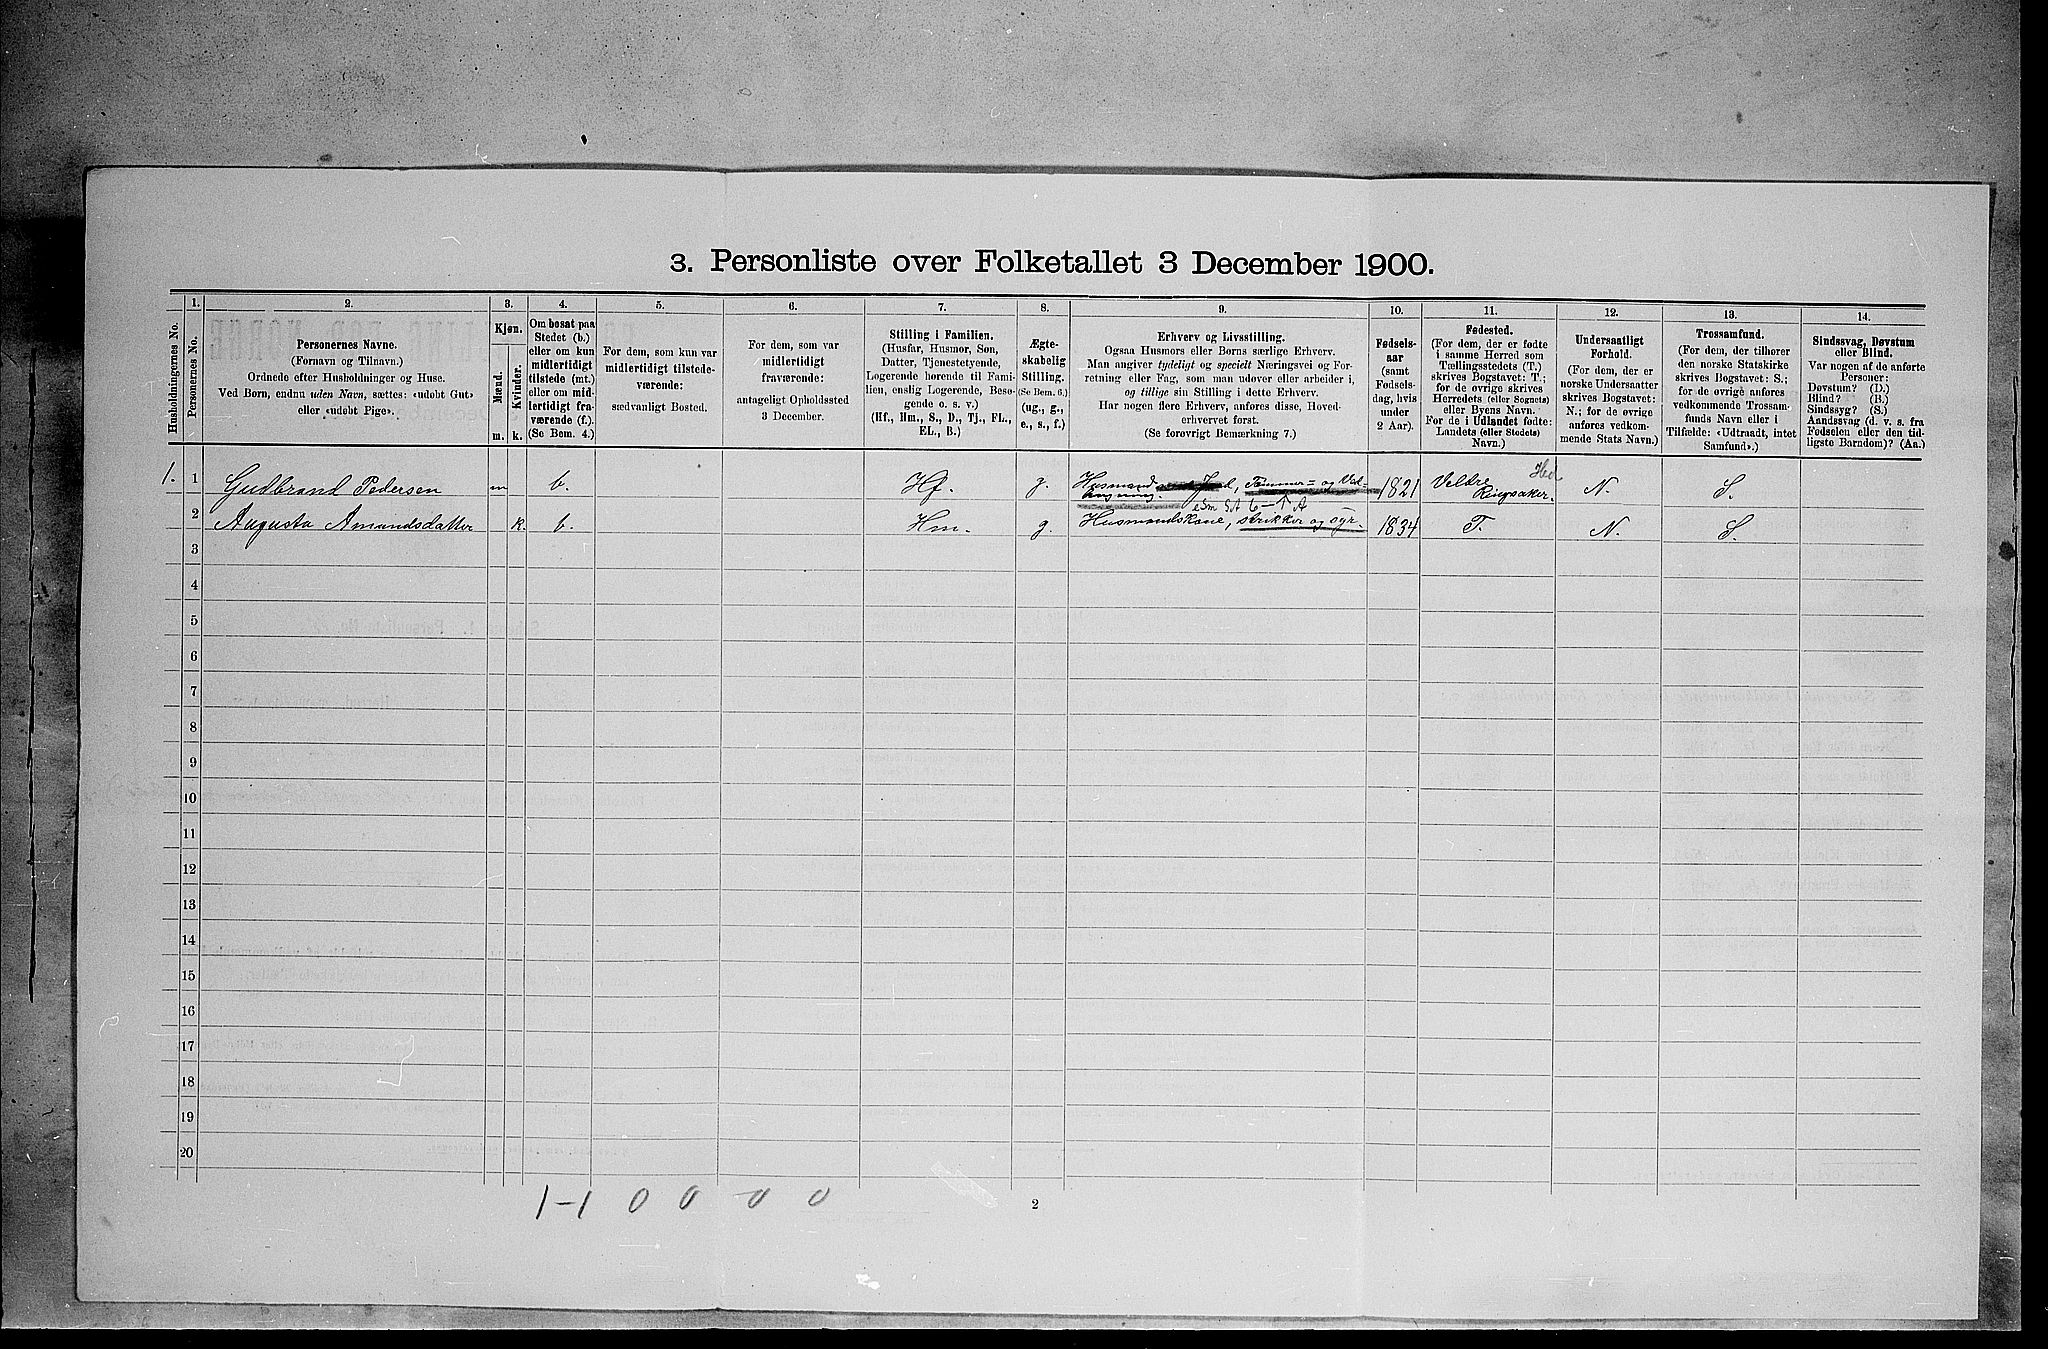 3. Personliste over Folketallet 3 December 1900.
Husholdningernes No.
1.
Personernes No.
2.
Personernes Navne.
(Fornavn og Tilnavn.)
Ordnede efter Husholdninger og Huse.
Ved Børn, endnu uden Navn, sættes: «udøbt Gut»
eller «udøbt Pige».
3.
Kjøn.
Mænd.
Kvinder.
m.
k.
4.
Om bosat paa
Stedet (b.)
eller om kun
midlertidigt
tilstede (mt.)
eller om mid-
lertidigt fra-
værende (f.).
(Se Bem. 4.)
5.
For dem, som kun var
midlertidigt tilstede-
værende:
sædvanligt Bosted.
6.
For dem, som var
midlertidigt
fraværende:
antageligt Opholdssted
3 December.
7.
Stilling i Familien.
(Husfar, Husmor, Søn,
Datter, Tjenestetyende,
Logerende hørende til Fami-
lien, enslig Logerende, Besø-
gende o. s. v.)
(Hf., Hm., S., D., Tj., FL.,
EL., B.)
8.
Ægte-
skabelig
Stilling.
(Se Bem. 6.)
(ug., g.,
e., s., f.)
9.
Erhverv og Livsstilling.
Ogsaa Husmors eller Børns særlige Erhverv.
Man angiver tydeligt og specielt Næringsvei og For-
retning eller Fag, som man udøver eller arbeider i,
og tillige sin Stilling i dette Erhverv.
Har nogen flere Erhverv, anføres disse, Hoved-
erhvervet først.
(Se forøvrigt Bemærkning 7.)
10.
Fødsels-
aar
(samt
Fødsels-
dag, hvis
under
2 Aar).
11.
Fødested.
(For dem, der er fødte
i samme Herred som
Tællingsstedets (T.)
skrives Bogstavet: T.;
for de øvrige skrives
Herredets (eller Sognets)
eller Byens Navn.
For de i Udlandet fødte:
Landets (eller Stedets)
Navn.)
12.
Undersaatligt
Forhold.
(For dem, der er
norske Undersaatter
skrives Bogstavet:
N.; for de øvrige
anføres vedkom-
mende Stats Navn.)
13.
Trossamfund.
(For dem, der tilhører
den norske Statskirke
skrives Bogstavet: S.;
for de øvrige anføres
vedkommende Trossam-
funds Navn eller i
Tilfælde: «Udtraadt, intet
Samfund».)
14.
Sindssvag, Døvstum
eller Blind.
Var nogen af de anførte
Personer:
Døvstum? (D.)
Blind? (B.)
Sindssyg? (S.)
Aandssvag (d. v. s. fra
Fødselen eller den tid-
ligste Barndom)? (Aa.)
1. 1 Gudbrand Pedersen m b. Hf. g. Husmand Jord, Tømmer= og Ved= 1821 Veldre Ringsaker. N. S.
hugning.
2 Augusta Amandsdatter k. b. Hm. g. Husmandskone, strikker og syr. 1834 T. N. S.
3
4
5
6
7
8
9
10
11
12
13
14
15
16
17
18
19
20
1-1 0 0 0 0
2